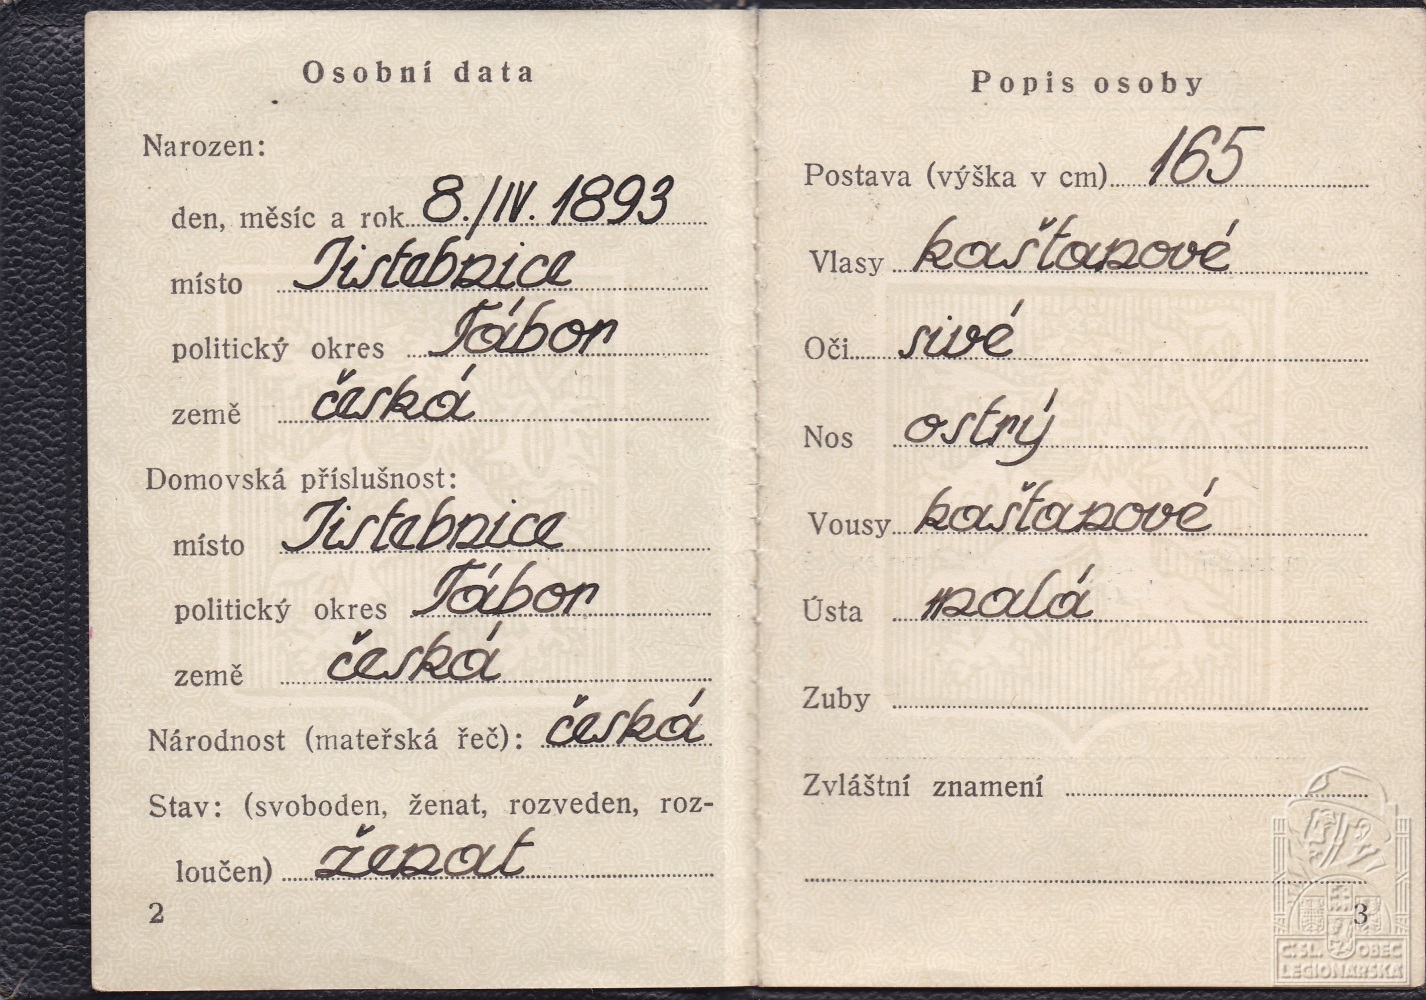 Osobní data
Narozen:
den, měsíc a rok 8./IV. 1893
místo Jistebnice
politický okres Tábor
země česká
Domovská příslušnost:
místo Jistebnice
politický okres Tábor
země česká
Národnost (mateřská řeč): česká
Stav: (svoboden, ženat, rozveden, roz-
loučen) ženat
2
Popis osoby
Postava (výška v cm) 165
Vlasy kaštanové
Oči sivé
Nos ostrý
Vousy kaštanové
Ústa malá
Zuby
Zvláštní znamení
3
ČSL. OBEC
LEGIONÁŘSKÁ